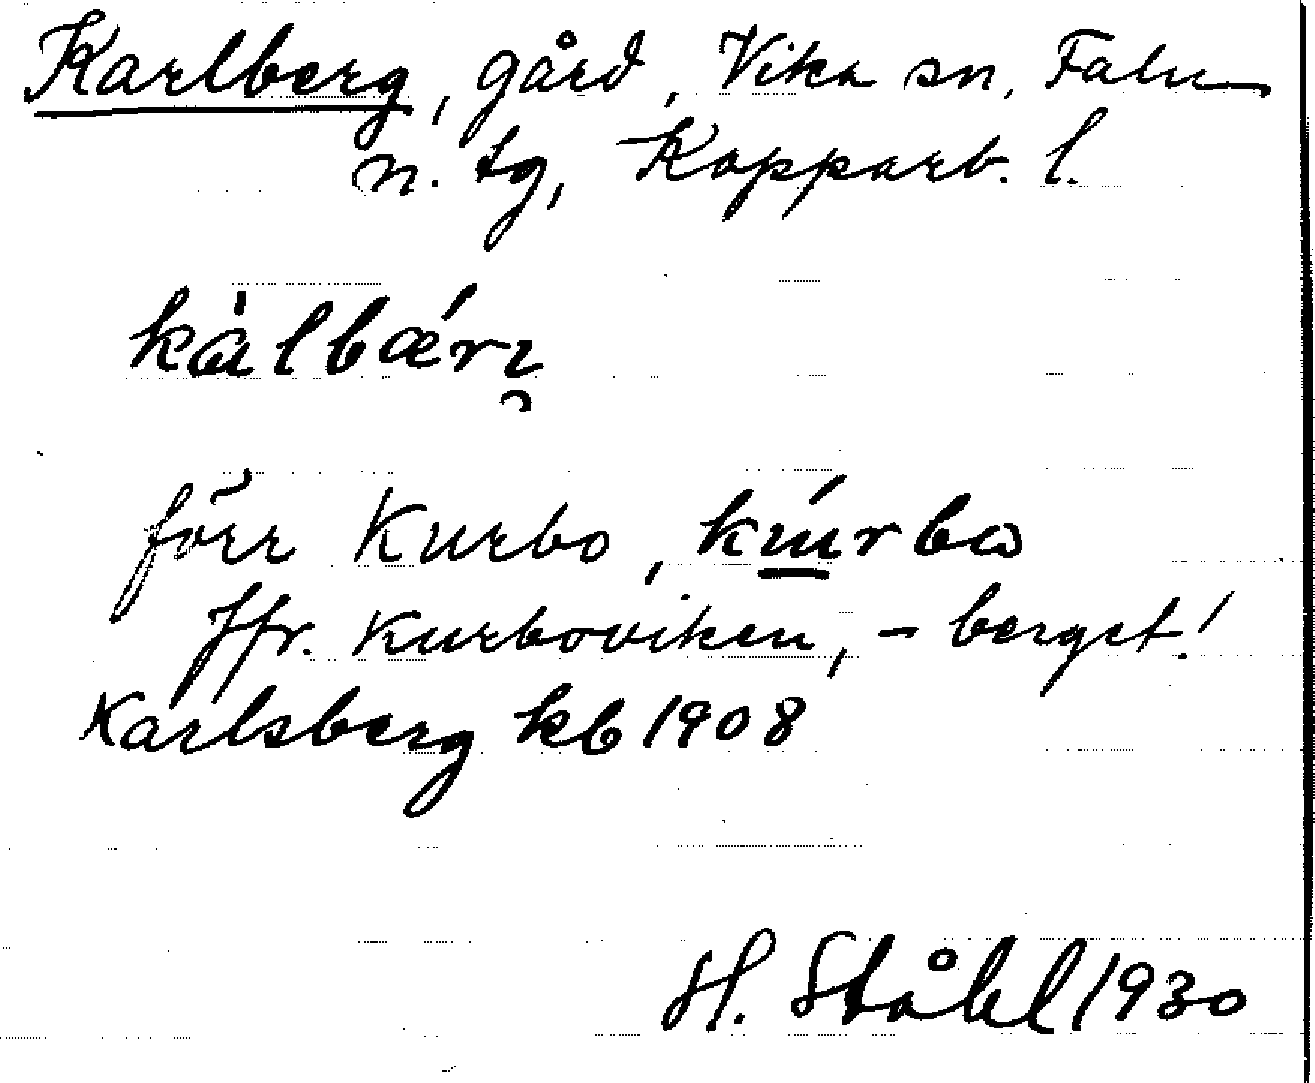 Karlberg, gård, Vika sn, Falu
n. tg, Kopparb. l.
kàlbǽrı̯
förr Kurbo, kɯ́rbω
Jfr. Kurboviken, - berget!
Karlsberg kb 1908
H. Ståhl 1930